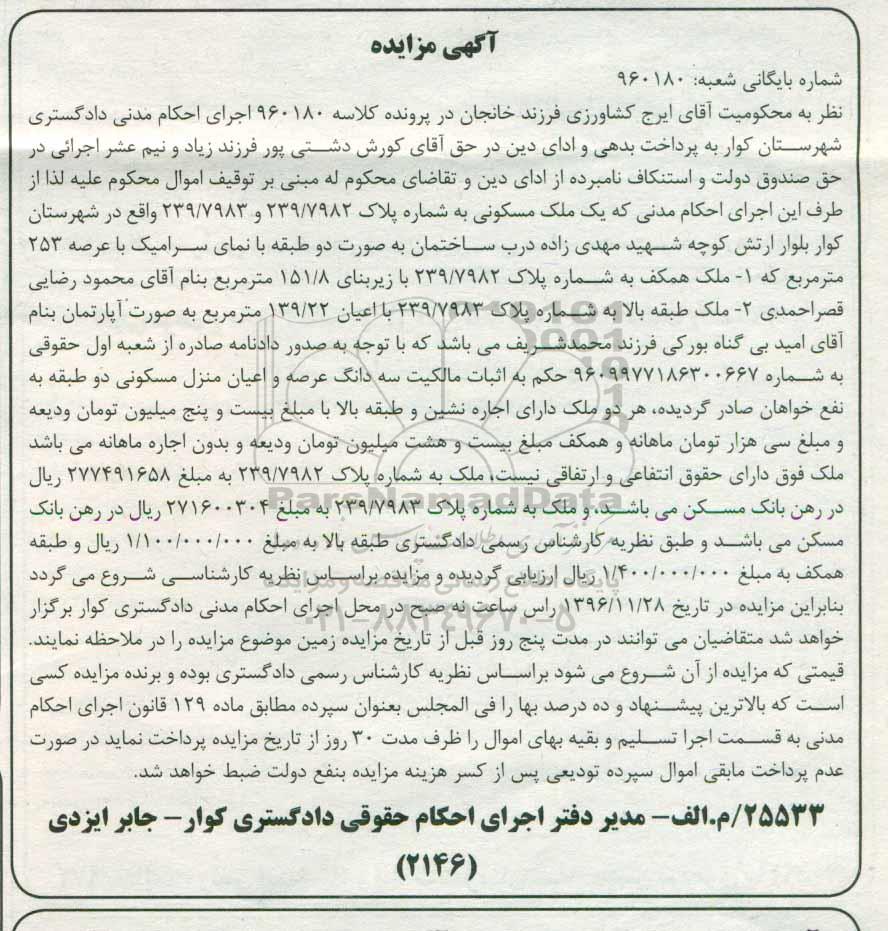 آگهی مزایده
شماره بایگانی شعبه: ۹۶۰۱۸۰
نظر به محکومیت آقای ایرج کشاورزی فرزند خانجان در پرونده کلاسه ۹۶۰۱۸۰ اجرای احکام مدنی دادگستری
شهرستان کوار به پرداخت بدهی و ادای دین در حق آقای کورش دشتی پور فرزند زیاد و نیم عشر اجرائی در
حق صندوق دولت و استنکاف نامبرده از ادای دین و تقاضای محکوم له مبنی بر توقیف اموال محکوم علیه لذا از
طرف این اجرای احکام مدنی که یک ملک مسکونی به شماره پلاک ۲۳۹/۷۹۸۲ و ۲۳۹/۷۹۸۳ واقع در شهرستان
کوار بلوار ارتش کوچه شهید مهدی زاده درب ساختمان به صورت دو طبقه با نمای سرامیک با عرصه ۲۵۳
مترمربع که ۱- ملک همکف به شماره پلاک ۲۳۹/۷۹۸۲ با زیربنای ۱۵۱/۸ مترمربع بنام آقای محمود رضایی
قصراحمدی ۲- ملک طبقه بالا به شماره پلاک ۲۳۹/۷۹۸۳ با اعیان ۱۳۹/۲۲ مترمربع به صورت آپارتمان بنام
آقای امید بی گناه بورکی فرزند محمدشریف می باشد که با توجه به صدور دادنامه صادره از شعبه اول حقوقی
به شماره ۹۶۰۹۹۷۷۱۸۶۳۰۰۶۶۷ حکم به اثبات مالکیت سه دانگ عرصه و اعیان منزل مسکونی دو طبقه به
نفع خواهان صادر گردیده، هر دو ملک دارای اجاره نشین و طبقه بالا با مبلغ بیست و پنج میلیون تومان ودیعه
و مبلغ سی هزار تومان ماهانه و همکف مبلغ بیست و هشت میلیون تومان ودیعه و بدون اجاره ماهانه می باشد
ملک فوق دارای حقوق انتفاعی و ارتفاقی نیست، ملک به شماره پلاک ۲۳۹/۷۹۸۲ به مبلغ ۲۷۷۴۹۱۶۵۸ ریال
در رهن بانک مسکن می باشد، و ملک به شماره پلاک ۲۳۹/۷۹۸۳ به مبلغ ۲۷۱۶۰۰۳۰۴ ریال در رهن بانک
مسکن می باشد و طبق نظریه کارشناس رسمی دادگستری طبقه بالا به مبلغ ۱/۱۰۰/۰۰۰/۰۰۰ ریال و طبقه
همکف به مبلغ ۱/۴۰۰/۰۰۰/۰۰۰ ریال ارزیابی گردیده و مزایده براساس نظریه کارشناسی شروع می گردد
بنابراین مزایده در تاریخ ۱۳۹۶/۱۱/۲۸ راس ساعت نه صبح در محل اجرای احکام مدنی دادگستری کوار برگزار
خواهد شد متقاضیان می توانند در مدت پنج روز قبل از تاریخ مزایده زمین موضوع مزایده را در ملاحظه نمایند.
قیمتی که مزایده از آن شروع می شود براساس نظریه کارشناس رسمی دادگستری بوده و برنده مزایده کسی
است که بالاترین پیشنهاد و ده درصد بها را فی المجلس بعنوان سپرده مطابق ماده ۱۲۹ قانون اجرای احکام
مدنی به قسمت اجرا تسلیم و بقیه بهای اموال را ظرف مدت ۳۰ روز از تاریخ مزایده پرداخت نماید در صورت
عدم پرداخت مابقی اموال سپرده تودیعی پس از کسر هزینه مزایده بنفع دولت ضبط خواهد شد.
۲۵۵۳۳/م.الف- مدیر دفتر اجرای احکام حقوقی دادگستری کوار- جابر ایزدی
(۲۱۴۶)
ParsNamadData
۰۲۱-۸۸۳۴۹۶۷۰-۵